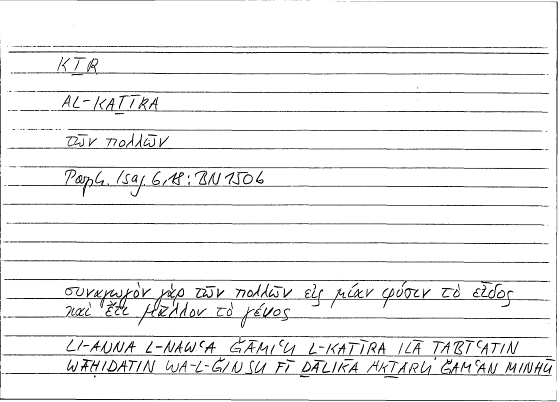 KṮR
AL-KAṮĪRA
τῶν πολλῶν
Porph. Isag. 6,18: BN 1506
συναγωγὸν γὰρ τῶν πολλῶν εἰς μίαν φύσιν τὸ εἶδος
καὶ ἔτι μᾶλλον τὸ γένος
LI-ANNA L-NAWʿA ǦĀMIʿU L-KAṮĪRA ILĀ ṬABĪʿATIN
WĀḤIDATIN WA-L-ǦINSU FĪ ḎĀLIKA AKṮARU ǦAMʿAN MINHU